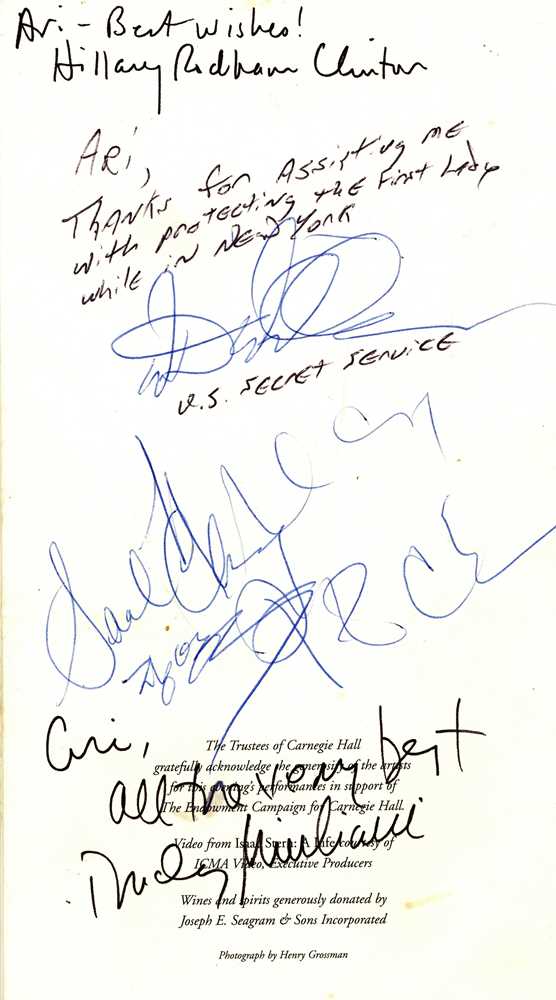 Ari - Best wishes!
Hillary Rodham Clinton
ARi,
THANKS for Assisting ME
with protecting the First Lady
while in NEW YORK
U.S. SECRET SERVICE
Ari,
all the very best
Rudy Giuliani
The Trustees of Carnegie Hall
gratefully acknowledge the generosity of the artists
for this evening's performances in support of
The Endowment Campaign for Carnegie Hall.
Video from Isaac Stern: A Life courtesy of
ICMA Video, Executive Producers
Wines and spirits generously donated by
Joseph E. Seagram & Sons Incorporated
Photograph by Henry Grossman